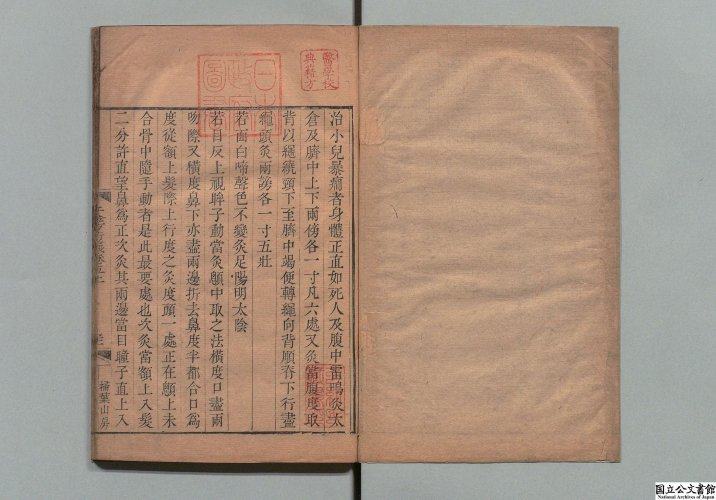 治小兒暴癇者身體正直如死人及腹中雷鳴灸太
倉及臍中上下兩傍各一寸凡六處又灸當腹度取
背以繩繞頸下至臍中竭便轉繩向背順脊下行盡
繩頭灸兩傍各一寸五壯
若面白啼聲色不變灸足陽明太陰
若目反上視眸子動當灸顖中取之法橫度口盡兩
吻際又橫度鼻下亦盡兩邊折去鼻度半都合口爲
度從額上髮際上行度之灸度頭一處正在顖上未
合骨中隨手動者是此最要處也次灸當額上入髮
二分許直望鼻爲正次灸其兩邊當目瞳子直上入
掃葉山房
醫學校
典籍方
日本
政府
圖書
国立公文書館
National Archives of Japan